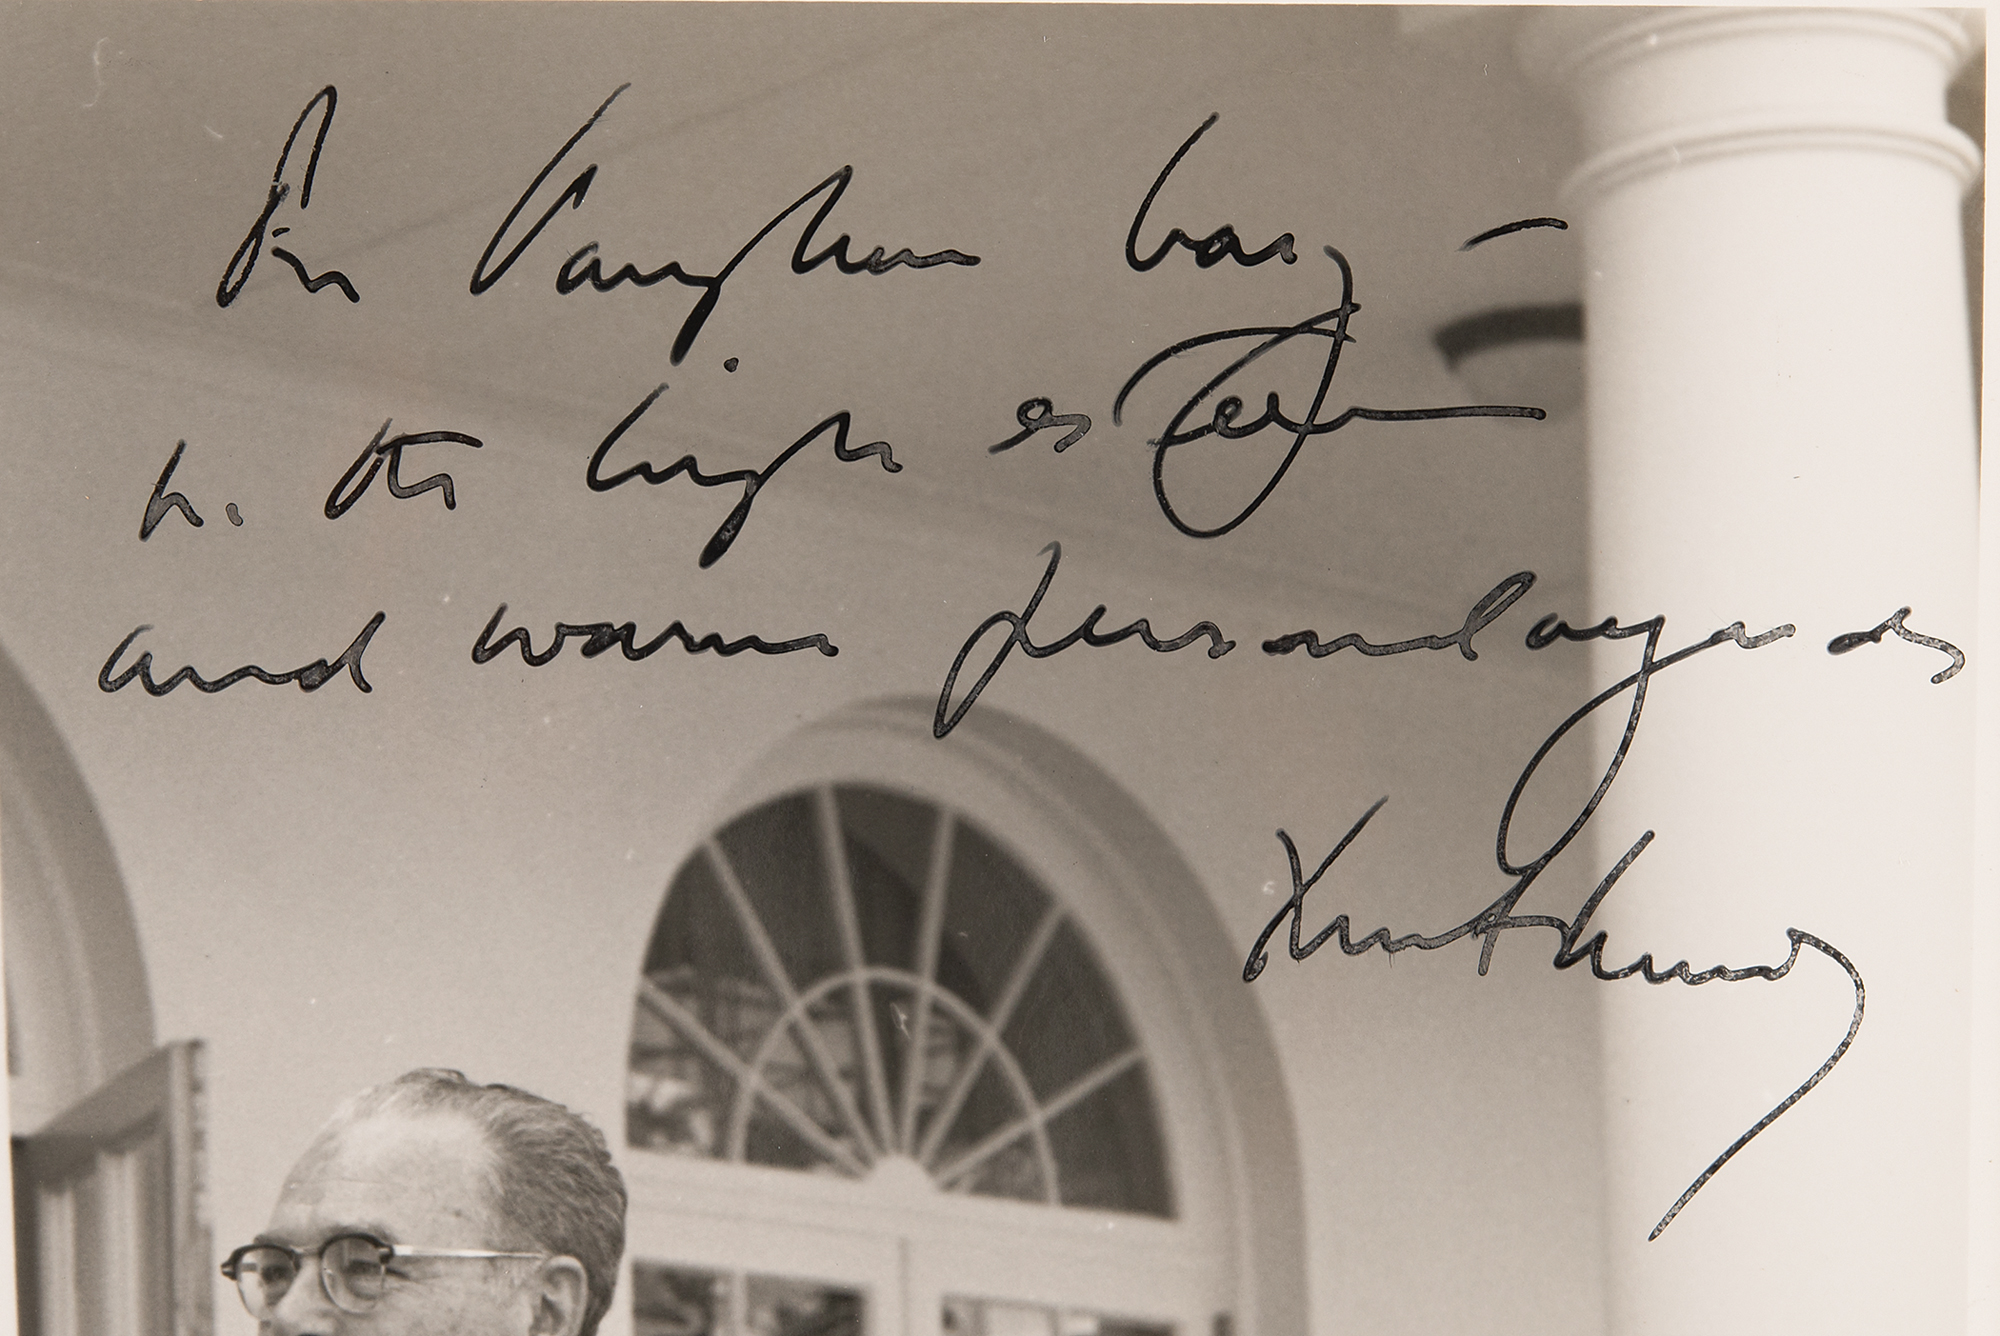 For Vaughan Gary –
with the high esteem
and warm personal regards
John Kennedy